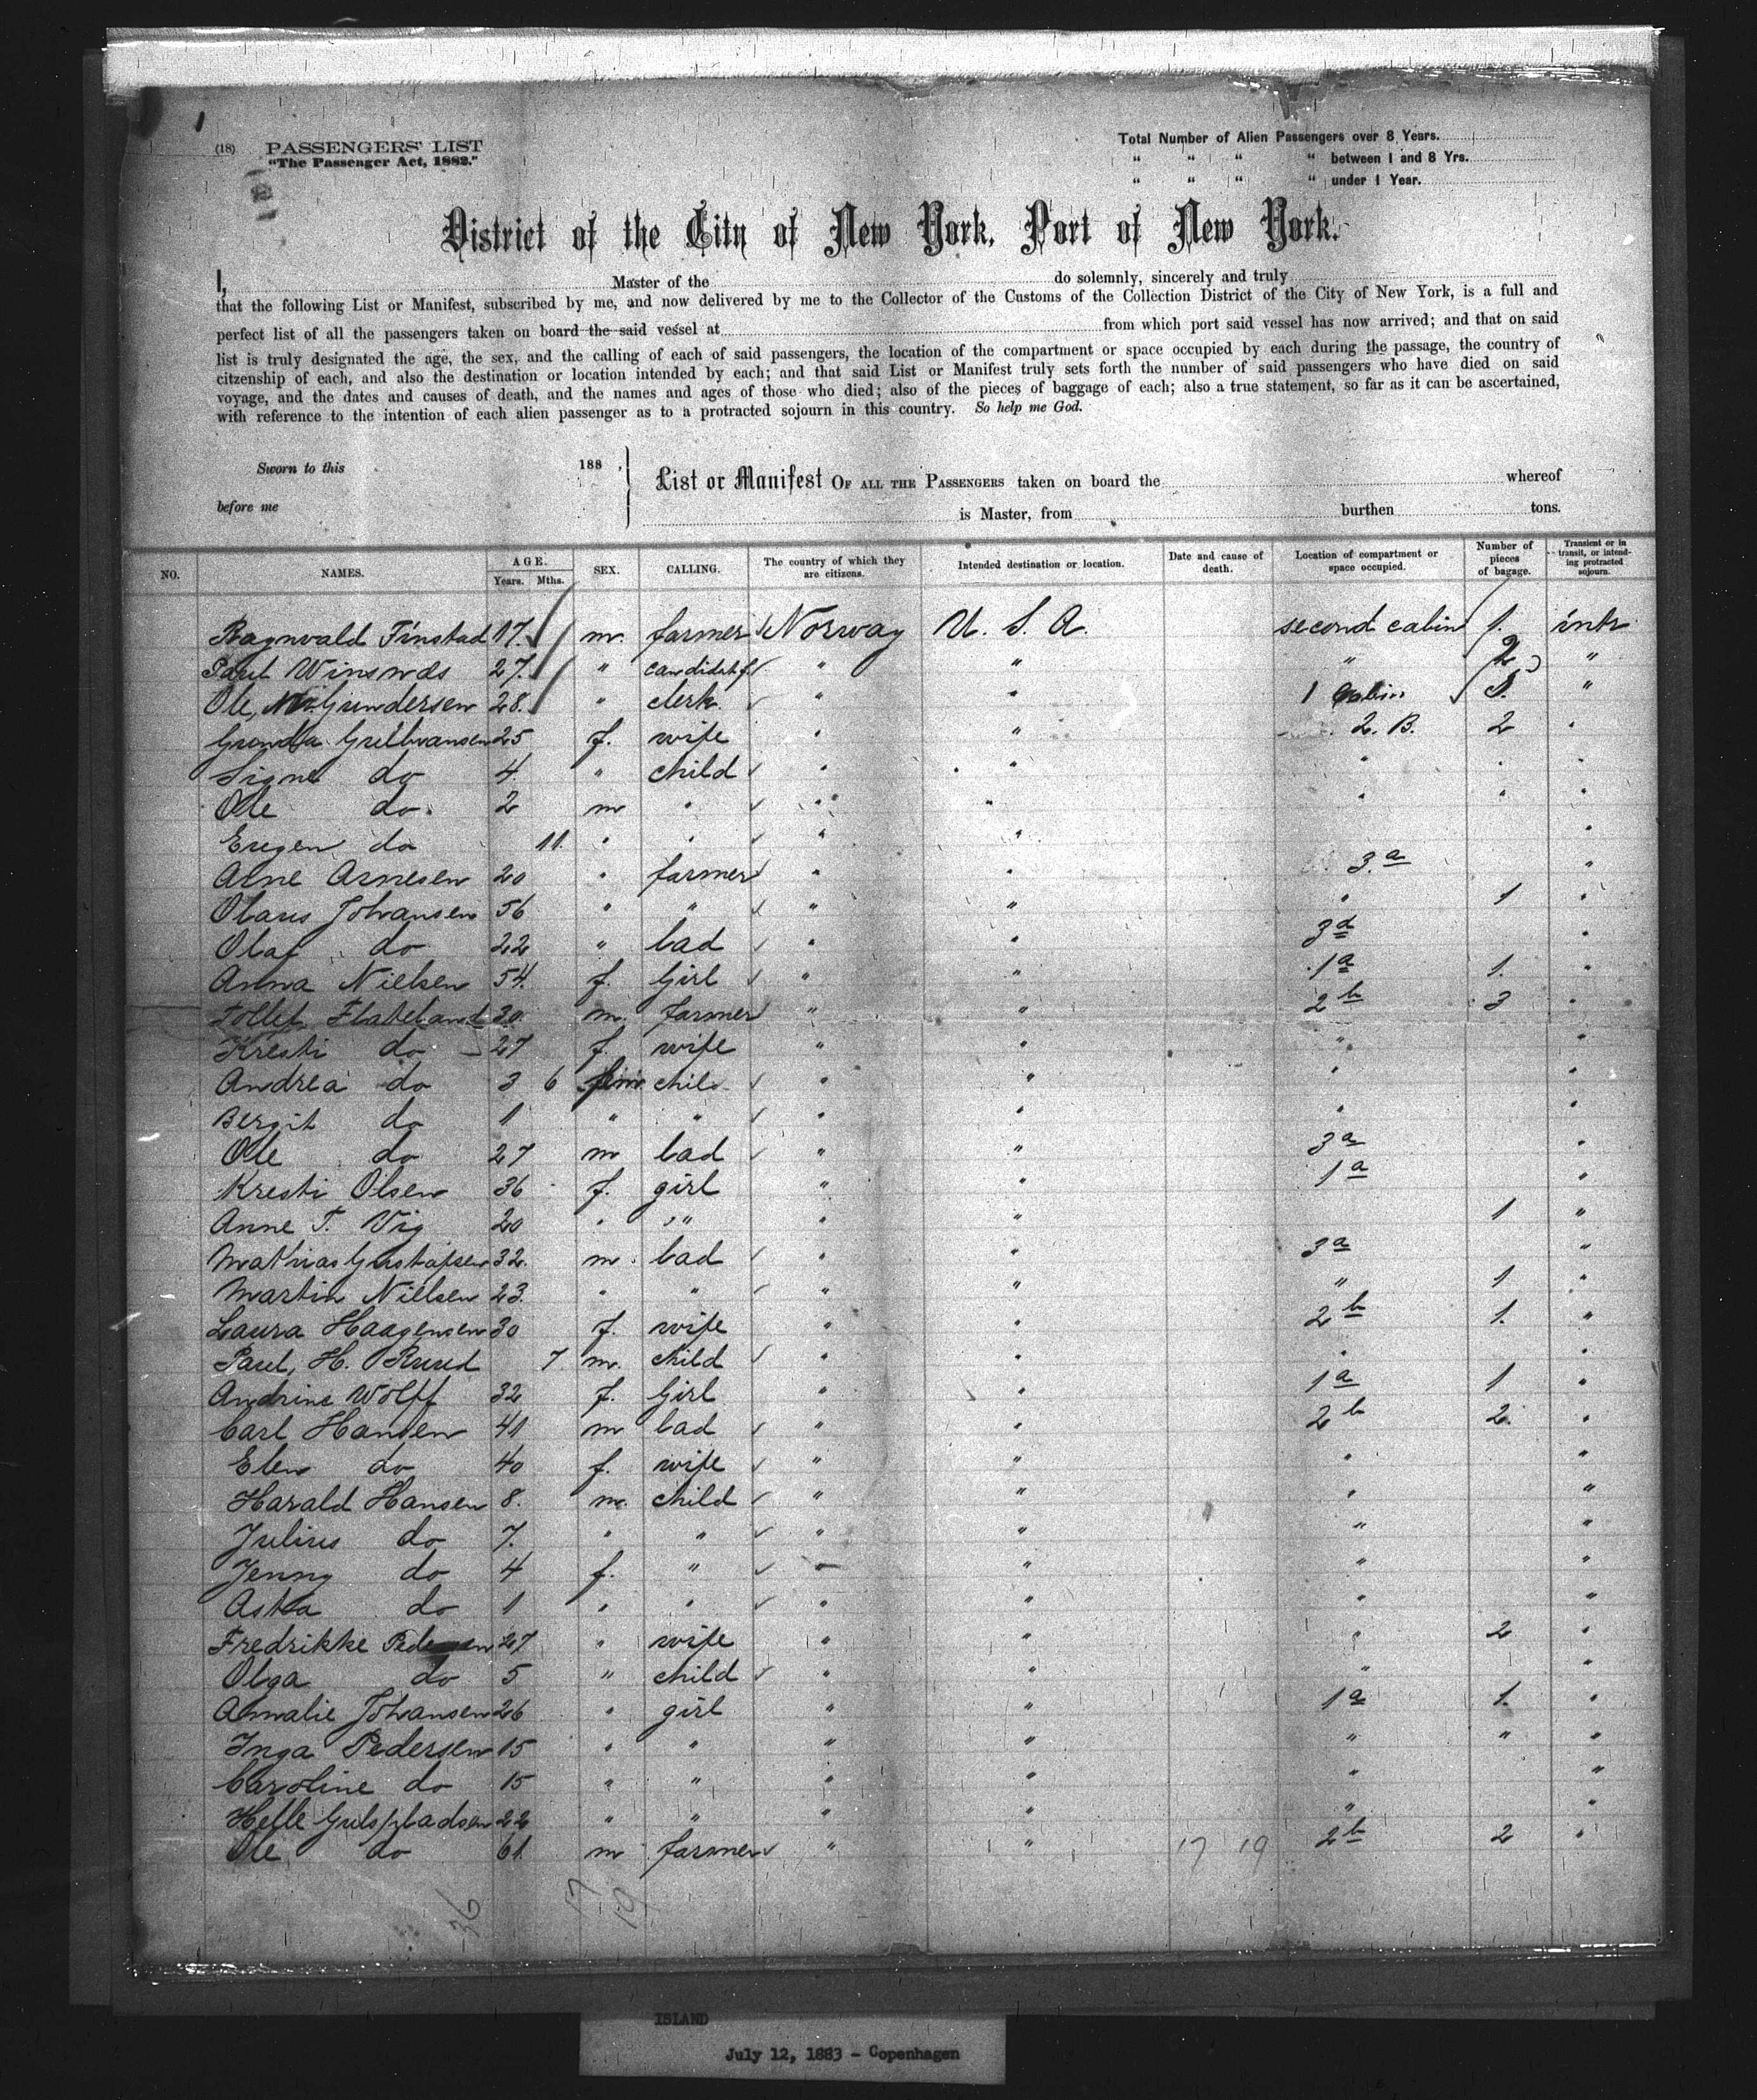 (18) PASSENGERS' LIST
"The Passenger Act, 1882."
Total Number of Alien Passengers over 8 Years.
" " " " between 1 and 8 Yrs.
" " " " under 1 Year.
District of the City of New York, Port of New York.
I, Master of the do solemnly, sincerely and truly
that the following List or Manifest, subscribed by me, and now delivered by me to the Collector of the Customs of the Collection District of the City of New York, is a full and
perfect list of all the passengers taken on board the said vessel at from which port said vessel has now arrived; and that on said
list is truly designated the age, the sex, and the calling of each of said passengers, the location of the compartment or space occupied by each during the passage, the country of
citzenship of each, and also the destination or location intended by each; and that said List or Manifest truly sets forth the number of said passengers who have died on said
voyage, and the dates and causes of death, and the names and ages of those who died; also of the pieces of baggage of each; also a true statement, so far as it can be ascertained,
with reference to the intention of each alien passenger as to a protracted sojourn in this country. So help me God.
Sworn to this 188 ,
before me
List or Manifest OF ALL THE PASSENGERS taken on board the whereof
is Master, from burthen tons.
NO. NAMES. AGE. Years. Mths. SEX. CALLING. The country of which they are citizens. Intended destination or location. Date and cause of death. Location of compartment or space occupied. Number of pieces of bagage. Transient or in transit, or intending protracted sojourn.
Ragnvald Finstad 17. m. farmer Norway U. S. A. second cabin 1. intr
Paul 27. " " " " 2 "
Ole Gundersen 28. " clerk " " 1 Cabin "
25 f. wife " " 2. B. 2 "
Signe do 4. " child " " " " "
Ole do. 2 m " " " " " "
Eugen do 11. " " " " "
Arne Arnesen 20 " farmer " " 3.a "
Olaus Johansen 56 " " " " " 1 "
Olaf do 22 " lad " " 3d "
Anna Nielsen 54. f. Girl " " 1a 1. "
Tollef Flateland 30. m. farmer " " 2b 3 "
Kresti do 27 f. wife " " " "
Andrea do 3 6 child " " " "
Bergit do 1 " " " " " "
Ole do 27 m lad " " 3a "
Kresti Olsen 36 f. girl " " 1a "
Anne T. Vig 20 " " " " 1 "
Mathias Gustafsen 32. m. lad " " 3a "
Martin Nielsen 23. " " " " " 1 "
Laura Haagensen 30 f. wife " " 2b 1. "
Paul, H. Ruud 7 m. child " " " "
Andrine Wolff 32 f. Girl " " 1a 1 "
Carl Hansen 41 m lad " " 2b 2. "
Elen do 40 f. wife " " " "
Harald Hansen 8. m. child " " " "
Julius do 7. " " " " " "
Jenny do 4 f. " " " " "
Asta do 1 " " " " " "
Fredrikke Pedersen 27 " wife " " " 2 "
Olga do 5 " child " " " "
Amalie Johansen 26 " girl " " 1a 1. "
Inga Pedersen 15 " " " " " " "
Caroline do 15 " " " " " "
Helle 22 " " " " " "
Ole do 61. m farmer " " 17 19 2b 2 "
36 17 19
ISLAND
July 12, 1883 - Copenhagen